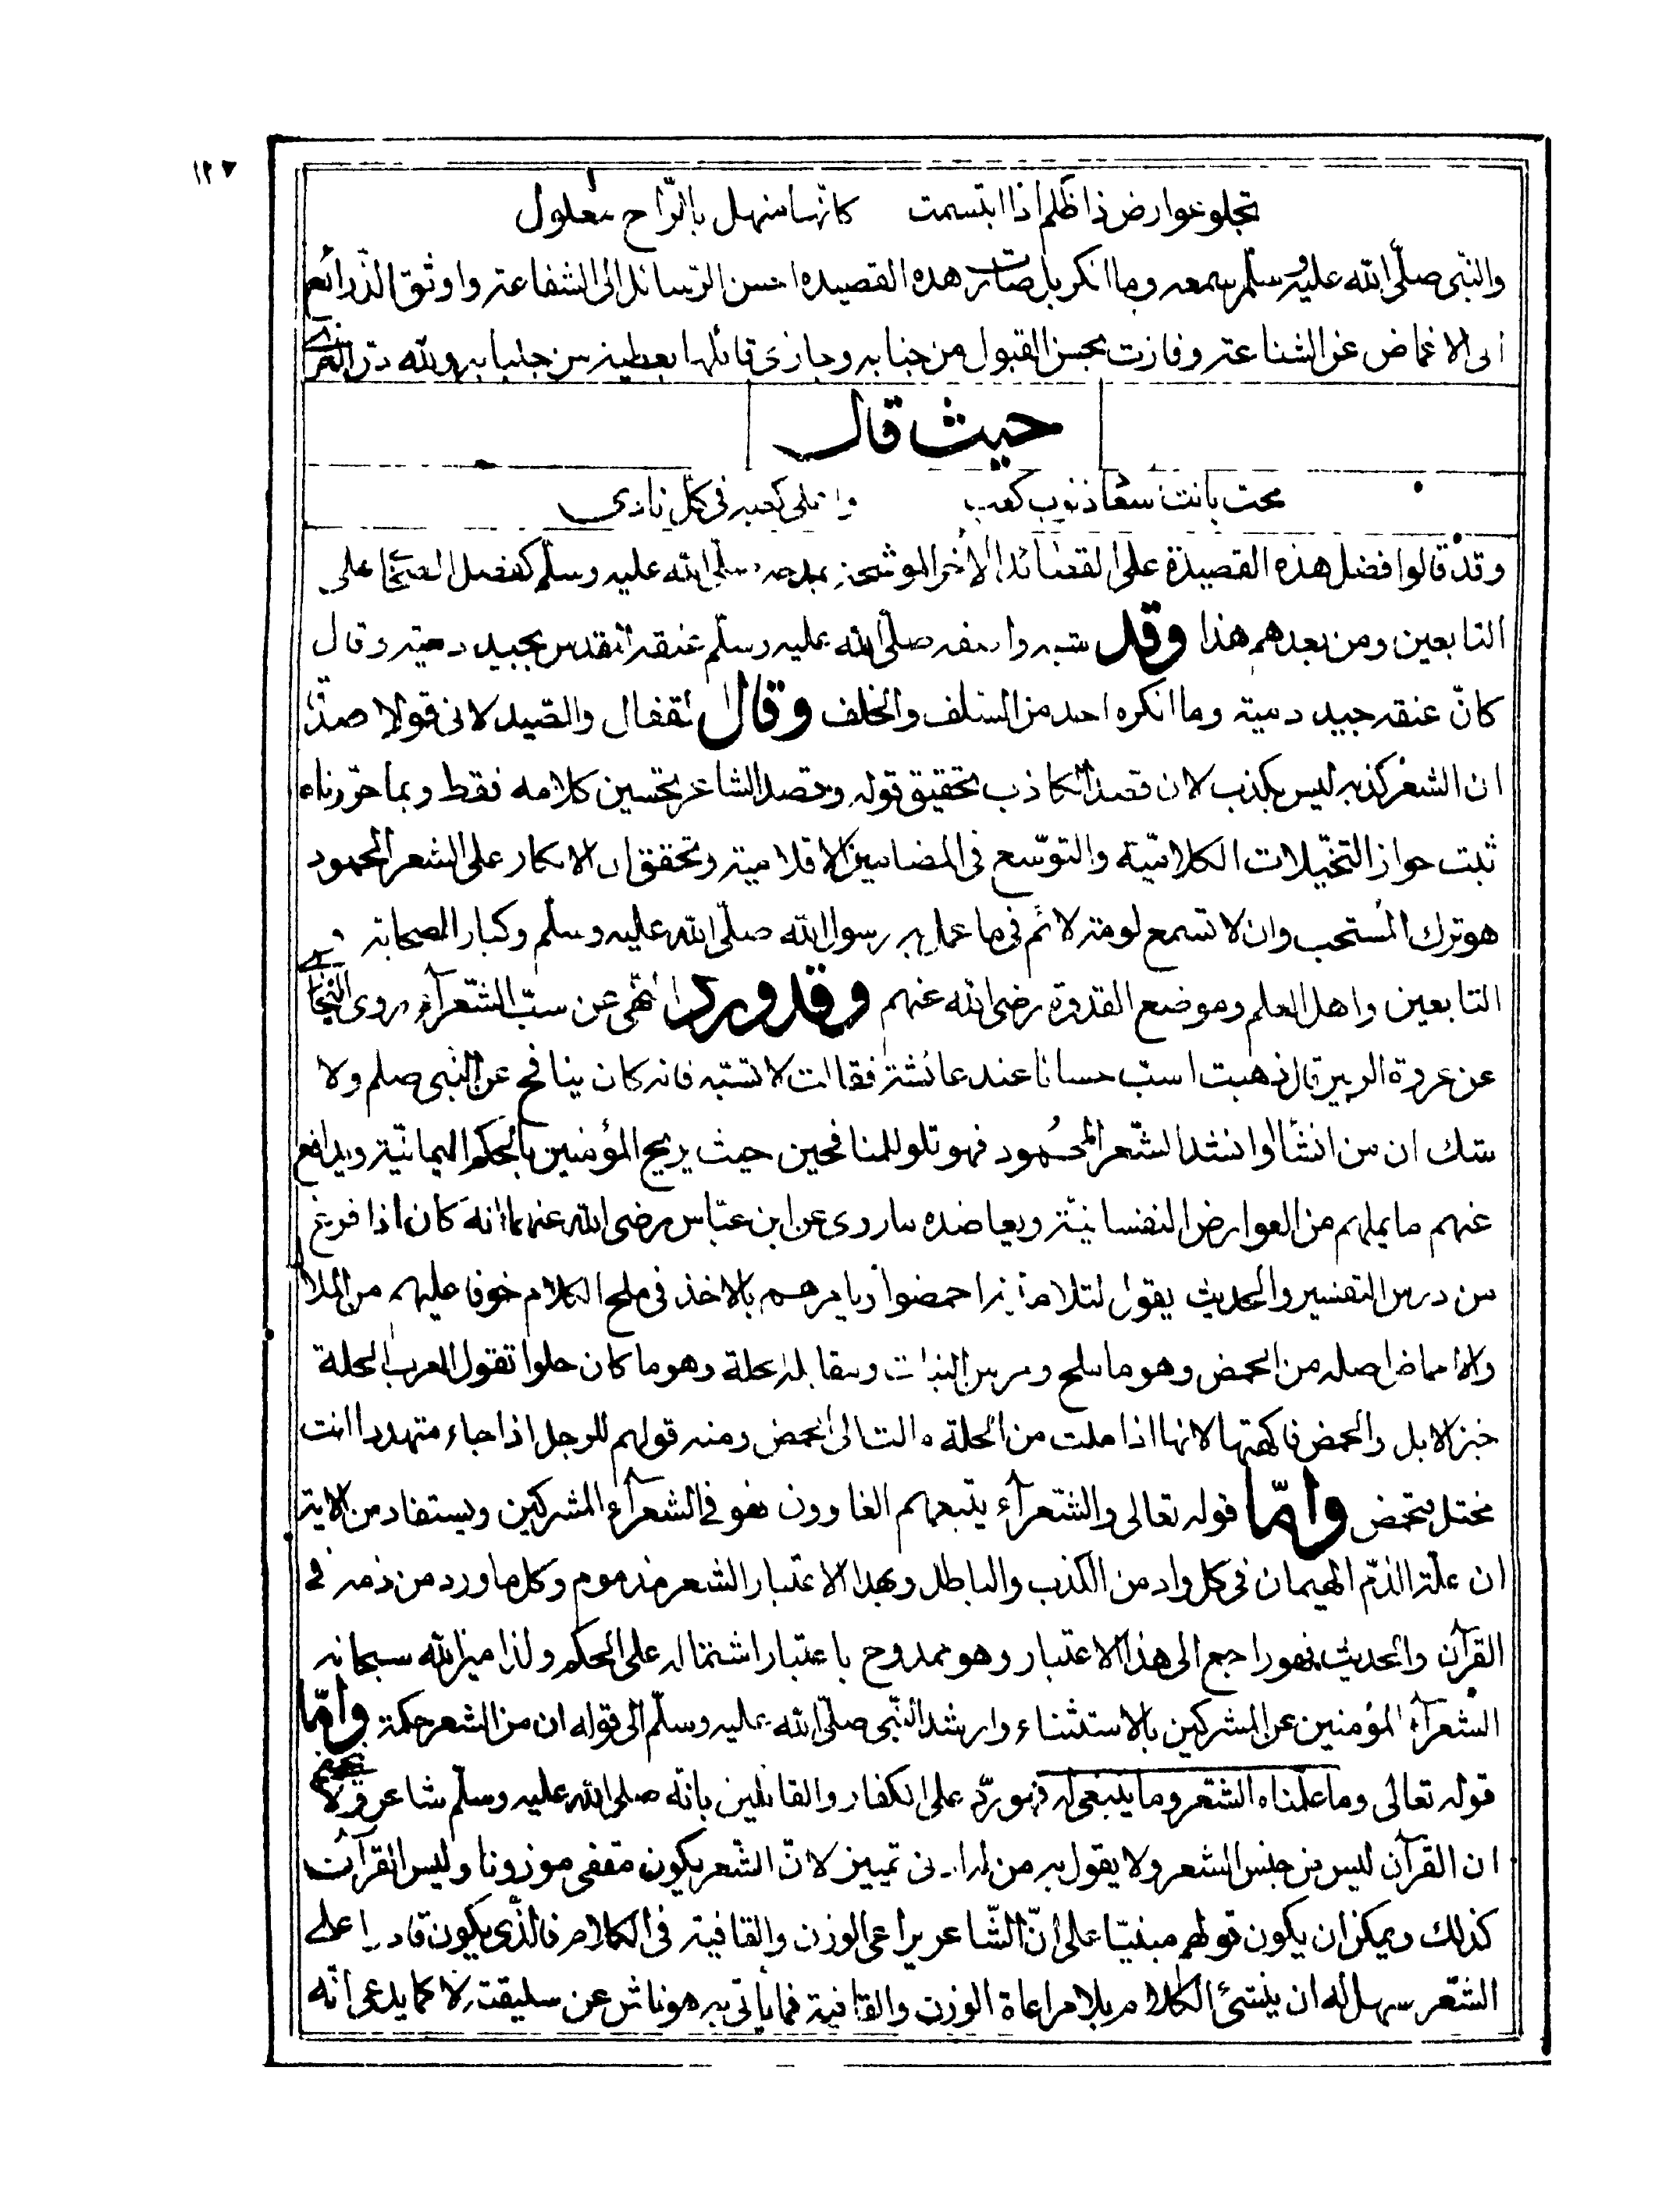 ١٢٧
تجلو عوارض ذا ظلم اذا ابتسمت كانها منهل بالرّاح معلول
والنبّى صلّى الله عليه وسلّم سمعه وما انكر بل صارت هذه القصيده احسن الوسائل الى الشفاعته واوثق الذّرائع
الى الاغماض عن الشناعته وفازت بحسن القبول من جنابه وجازى قائلها بعطية من جلبابه ولله درّ الغزى
حيث قال
محت بانت سعاد ذنوب كعب واعلى كعبه فى كلّ نادى
وقد قالوا فضل هذه القصيدة على القصائد الأخر الموشحة بمدحه صلّى الله عليه وسلّم كفضل الصحابة على
التابعين ومن بعدهم هذا وقد شبه واصفه صلّى الله عليه وسلّم عنقه المقدس بجيد دمية وقال
كانّ عنقه جيد دمية وما انكره احد من السّلف والخلف وقال القفال والصّيدلانى قولا صدقا
ان الشعر كذبه ليس بكذب لان قصد الكاذب تحقيق قوله وقصد الشاعر تحسين كلامه فقط وبما حرّرناه
ثبت جواز التخيّلات الكلاميّة والتوسّع فى المضامين الاقلامية وتحقق ان الانكار على الشعر المحمود
هو ترك المستحب وان لا تسمع لومة لائم فى ما عمل به رسول الله صلّى الله عليه وسلّم وكبار الصحابة و
التابعين واهل العلم وموضع القدوة رضى الله عنهم وقد ورد النّهى عن سبّ الشّعرآء روى الشيخان
عن عروة الزبير قال ذهبت اسبّ حسانا عند عائشة فقالت لا تسبّه فانه كان ينافح عن النّبى صلعم ولا
شك ان من انشأ او انشد الشّعر المحمُود فهو تلو للمنافحين حيث يريح المؤمنين بالحكم اليمانيّة ويدافع
عنهم ما يملهم من العوارض النفسانيّة ويعاضده ما روى عن ابن عبّاس رضى الله عنهما انه كان اذا فرغ
من درس التفسير والحديث يقول لتلامذته احمضوا ويامرهم بالاخذ فى ملح الكلام خوفا عليهم من الملال
والاحماض اصله من الحمض وهو ما ملح ومر من النبات ومقابله الحلة وهو ما كان حلوا تقول العرب الحلة
خبز الابل والحمض فاكهتها لانها اذا ملت من الحلة مالت الى الحمض ومنه قولهم للرجل اذا جاء متهددا انت
مختل فتحمض وامّا قوله تعالى والشّعرآء يتبعهم الغاوون فهو فى الشعرآء المشركين ويستفاد من الاية
ان علّة الذّم الهيمان فى كل واد من الكذب والباطل وبهذا الاعتبار الشعر مذموم وكل ما ورد من ذمه فى
القرآن والحديث فهو راجع الى هذا الاعتبار وهو ممدوح باعتبار اشتماله على الحكم ولذا ميز الله سبحانه
الشعرآء المؤمنين عن المشركين بالاستثناء وارشد النّبى صلّى الله عليه وسلّم الى قوله ان من الشعر حكمة وامّا
قوله تعالى وما علّمناه الشّعر وما ينبغى له فهو ردّ على الكفار والقائلين بانّه صلى الله عليه وسلّم شاعر ولا يخفى
ان القرآن ليس من جنس الشعر ولا يقول به من له ادنى تمييز لانّ الشّعر يكون مقفى موزونا وليس القرآن
كذلك ويمكن ان يكون قولهم مبنيّا على انّ الشّاعر يراعى الوزن والقافية فى الكلام فالذّى يكون قادرا على
الشّعر سهل له ان ينشئ الكلام بلا مراعاة الوزن والقافية فما يأتى به هو ناش عن سليقته لا كما يدعى انّه